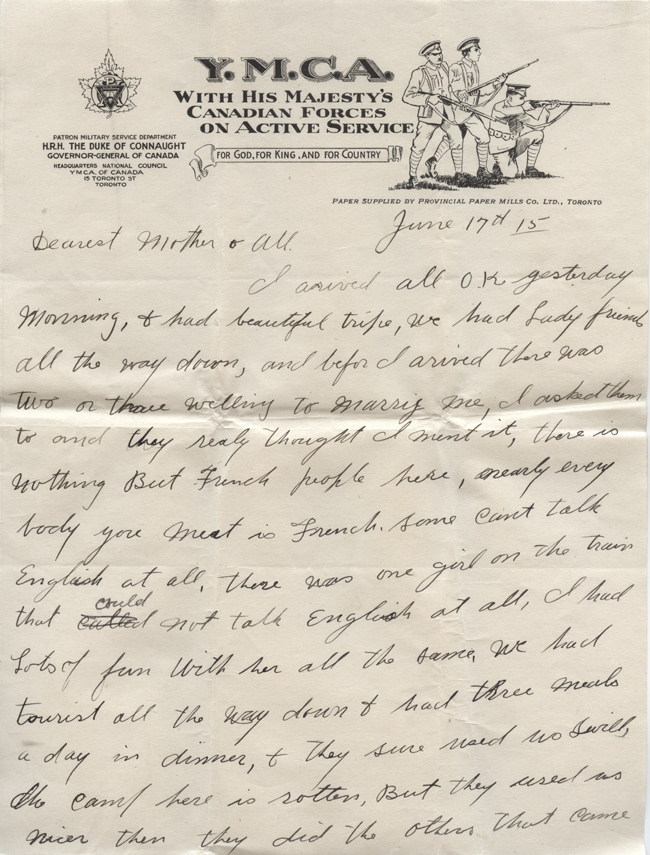 Y.M.C.A.
WITH HIS MAJESTY'S
CANADIAN FORCES
ON ACTIVE SERVICE
FOR GOD, FOR KING, AND FOR COUNTRY
PATRON MILITARY SERVICE DEPARTMENT
H.R.H. THE DUKE OF CONNAUGHT
GOVERNOR-GENERAL OF CANADA
HEADQUARTERS NATIONAL COUNCIL
Y.M.C.A. OF CANADA
15 TORONTO ST
TORONTO
PAPER SUPPLIED BY PROVINCIAL PAPER MILLS CO. LTD., TORONTO
June 17th 15
Dearest Mother & All.
I arived all O.K yesterday
Morning, & had beautiful tripe, we had Lady friends
all the way down, and befor I arived there was
two or thare welling to marrie me, I asked them
to and they realy thought I ment it, there is
nothing But French people here, nearly every
body you meat is French. some cant talk
English at all, there was one girl on the train
that could not talk English at all, I had
Lots of fun With her all the same, We had
tourist all the way down & had three meals
a day in dinner, & they sure used us Swill,
the camp here is rotten, But they used us
nicer then they did the others that came